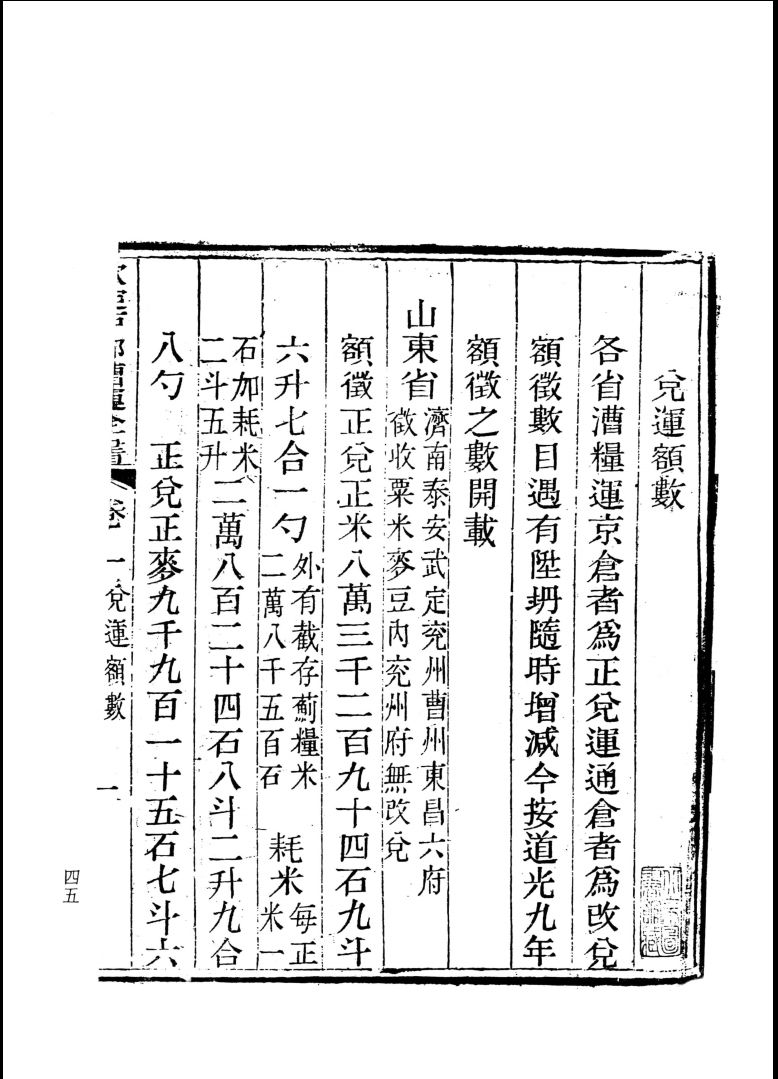 兌運額數
各省漕糧運京倉者爲正兌運通倉者爲改兌
額徵數目遇有陞坍隨時增減今按道光九年
額徵之數開載
山東省濟南泰安武定兖州曹州東昌六府
徵收粟米麥豆內兖州府無改兌
額徵正兌正米八萬三千二百九十四石九斗
六升七合一勺外有截存薊糧米
二萬八千五百石
耗米每正
米一
石加耗米
二斗五升
二萬八百二十四石八斗二升九合
八勺 正兌正麥九千九百一十五石七斗六
部漕運全書 卷一 兌運額數 一
四五